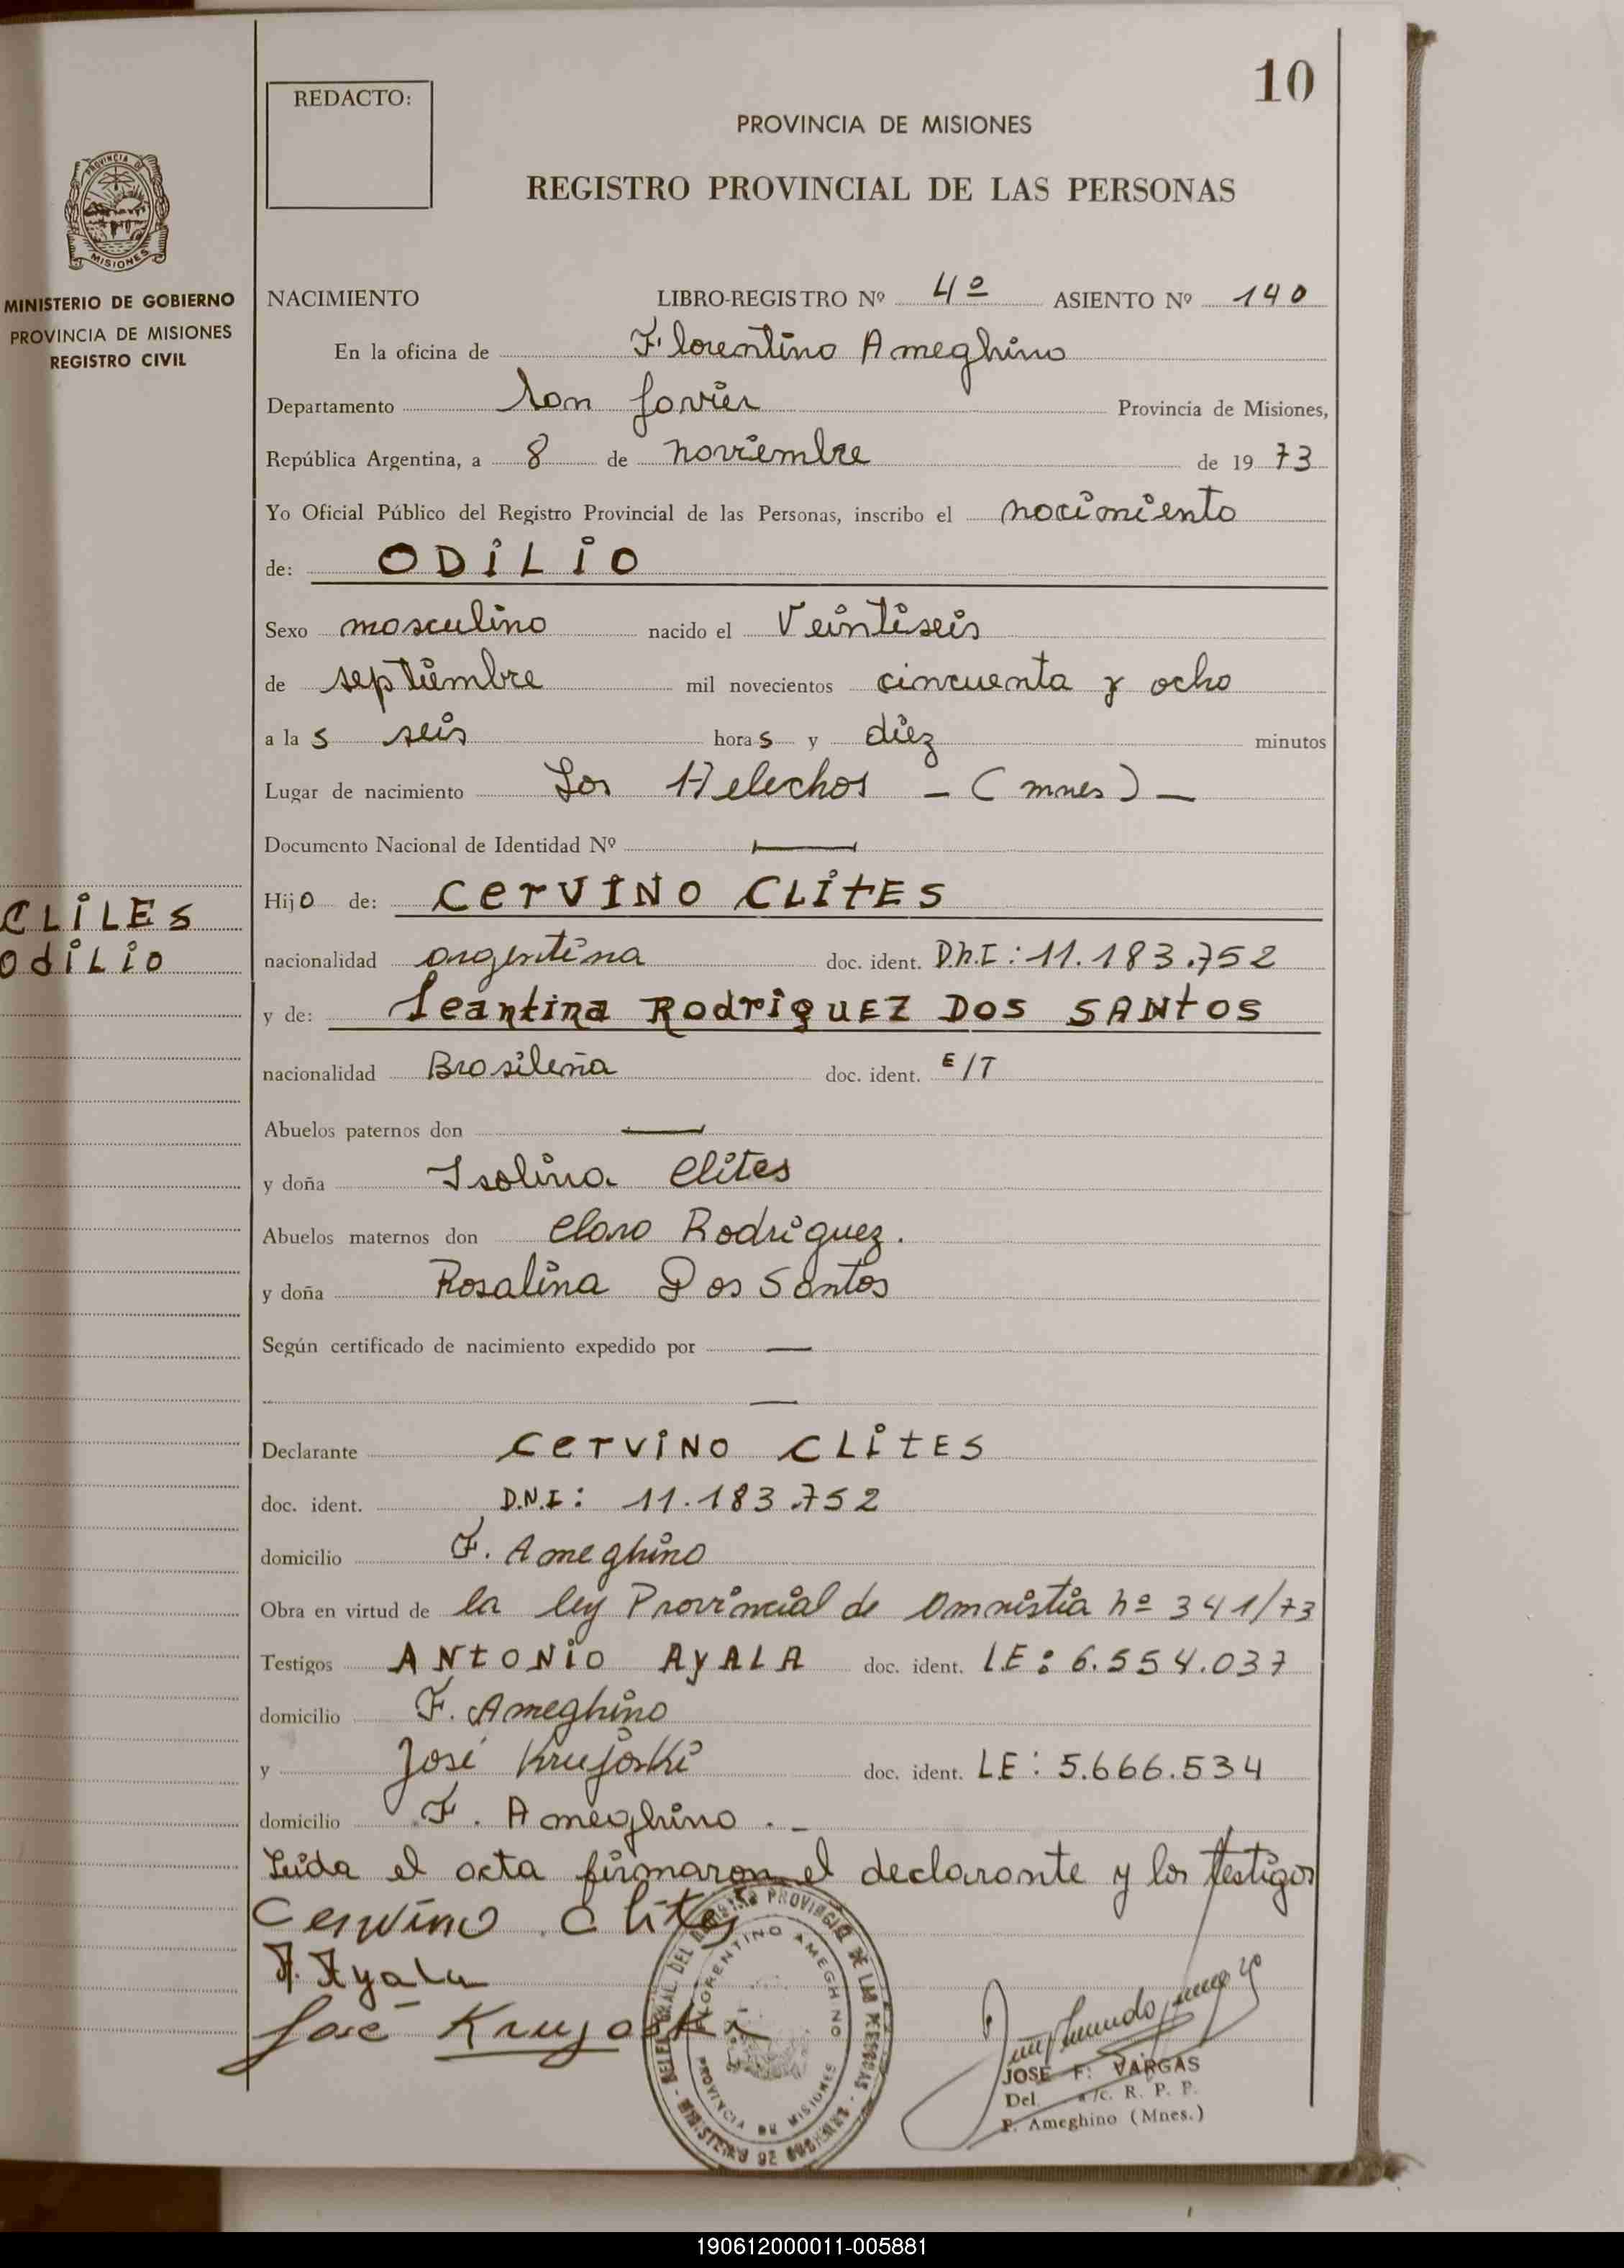 10
REDACTO:
PROVINCIA DE MISIONES
REGISTRO PROVINCIAL DE LAS PERSONAS
PROVINCIA DE
MISIONES
MINISTERIO DE GOBIERNO
PROVINCIA DE MISIONES
REGISTRO CIVIL
NACIMIENTO LIBRO-REGISTRO Nº 4º ASIENTO Nº 140
En la oficina de Florentino Ameghino
Departamento San Javier Provincia de Misiones,
República Argentina, a 8 de noviembre de 1973
Yo Oficial Público del Registro Provincial de las Personas, inscribo el nacimiento
de: ODILIO
Sexo masculino nacido el Veintiseis
de septiembre mil novecientos cincuenta y ocho
a las seis horas y diez minutos
Lugar de nacimiento Los Helechos - (mnes) -
Documento Nacional de Identidad Nº —
Hijo de: CERVINO CLITES
CLILES
ODILIO
nacionalidad argentina doc. ident. D.N.I: 11.183.752
y de: Leantina RODRIGUEZ DOS SANTOS
nacionalidad Brasileña doc. ident. E/T
Abuelos paternos don —
y doña Isolina Clites
Abuelos maternos don Claro Rodriguez.
y doña Rosalina Dos Santos
Según certificado de nacimiento expedido por —
—
Declarante CERVINO CLITES
doc. ident. D.N.I: 11.183.752
domicilio F. Ameghino
Obra en virtud de la ley Provincial de Amnistia nº 341/73
Testigos ANTONIO AYALA doc. ident. L.E: 6.554.037
domicilio F. Ameghino
y José Krujoski doc. ident. L.E: 5.666.534
domicilio F. Ameghino.-
Leida el acta firmaron el declarante y los testigos
Cervino Clites
A. Ayala
José Krujoski
DEL REGISTRO PROVINCIAL DE LAS PERSONAS - MINISTERIO DE GOBIERNO
FLORENTINO AMEGHINO
PROVINCIA DE MISIONES
JOSE F. VARGAS
Del. a/c. R. P. P.
F. Ameghino (Mnes.)
190612000011-005881